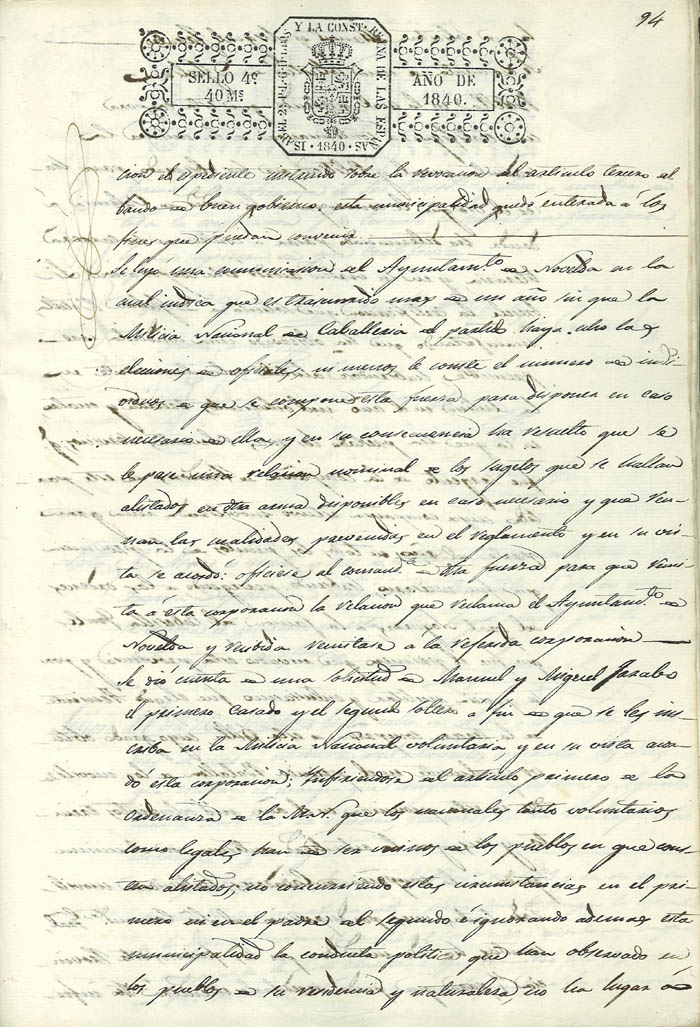 94
Y LA CONST. REYNA DE LAS ESPAÑAS
ISABEL 2ª P. L. G. D. DIOS
SELLO 4º
40 Mˢ
AÑO DE
1840.
1840
cion el espediente instruido sobre la revocacion del articulo tercero del
bando de buen gobierno. esta municipalidad quedó enterada á los
fines que puedan convenir.
Se leyó una comunicacion del Ayuntamᵗᵒ de Novelda en la
cual indica que es trascurrido mas de un año sin que la
Milicia Nacional de Caballeria del partido haya hecho la e
lecciones de oficiales, ni menos le conste el numero de indi-
viduos de que se compone esta fuerza para disponer en caso
necesario de ella, y en su consecuencia ha resuelto que se
le pase una relacion nominal de los sugetos que se hallan
alistados en dha arma disponibles en caso necesario y que reu-
nan las cualidades prevenidas en el reglamento y en su vis-
ta se acordó: oficiese al comandᵗᵉ de dha fuerza para que remi-
ta á esta corporacion la relacion que reclama el Ayuntamᵗᵒ de
Novelda y recibida remitase á la referida corporacion
Se dió cuenta de una solicitud de Manuel y Miguel
el primero casado y el segundo soltero á fin de que se les ins
criba en la Milicia Nacional voluntaria, y en su vista acor
dó esta corporacion; Infiriendose del articulo primero de la
ordenanza de la que los nacionales tanto voluntarios
como legales han de ser vecinos de los pueblos en que cons-
ten alistados, no concurriendo estas circunstancias en el pri-
mero ni en el padre del segundo é ignorando ademas esta
municipalidad la conducta politica que han observado en
los pueblos de su residencia y naturaleza no ha lugar á